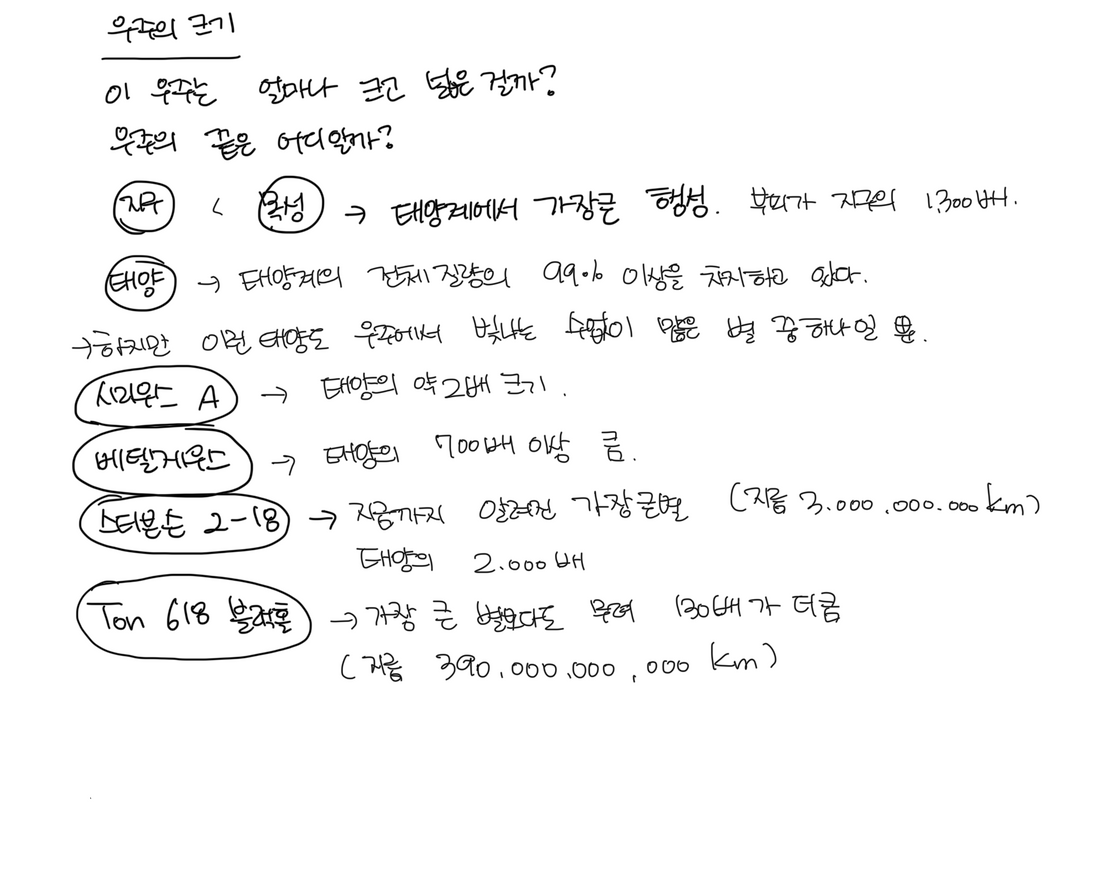 우주의 크기
이 우주는 얼마나 크고 넓은 걸까?
우주의 끝은 어디일까?
지구 < 목성 → 태양계에서 가장큰 행성. 부피가 지구의 1,300배.
태양 → 태양계의 전체질량의 99% 이상을 차지하고 있다.
→하지만 이런 태양도 우주에서 빛나는 수없이 많은 별 중하나일 뿐.
시리우스 A → 태양의 약2배 크기.
베텔게우스 → 태양의 700배 이상 큼.
스티븐슨 2-18 → 지금까지 알려진 가장큰별 (지름 3.000.000.000km)
태양의 2.000배
Ton 618 블랙홀 → 가장 큰 별보다도 무려 130배가 더큼
(지름 390.000.000.000 km)